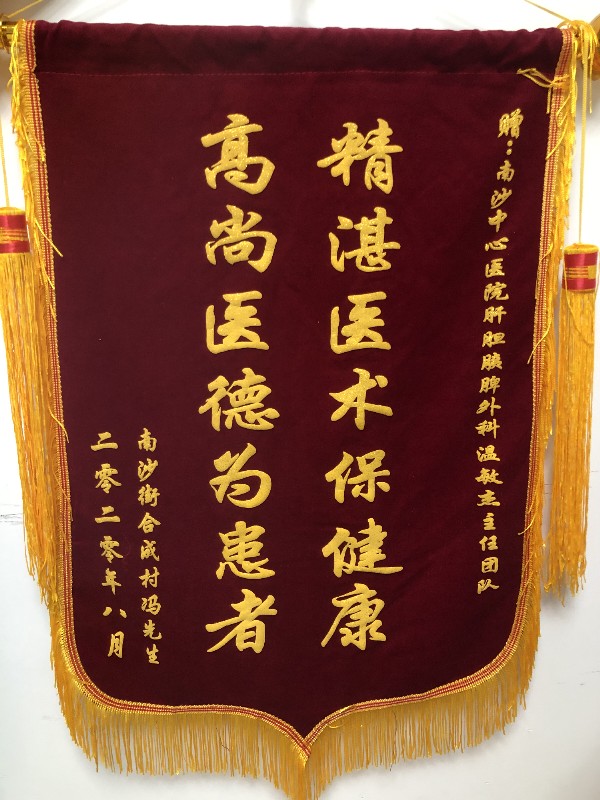 赠：南沙中心医院肝胆胰脾外科温敏杰主任团队
精湛医术保健康
高尚医德为患者
南沙街合成村冯先生
二零二零年八月